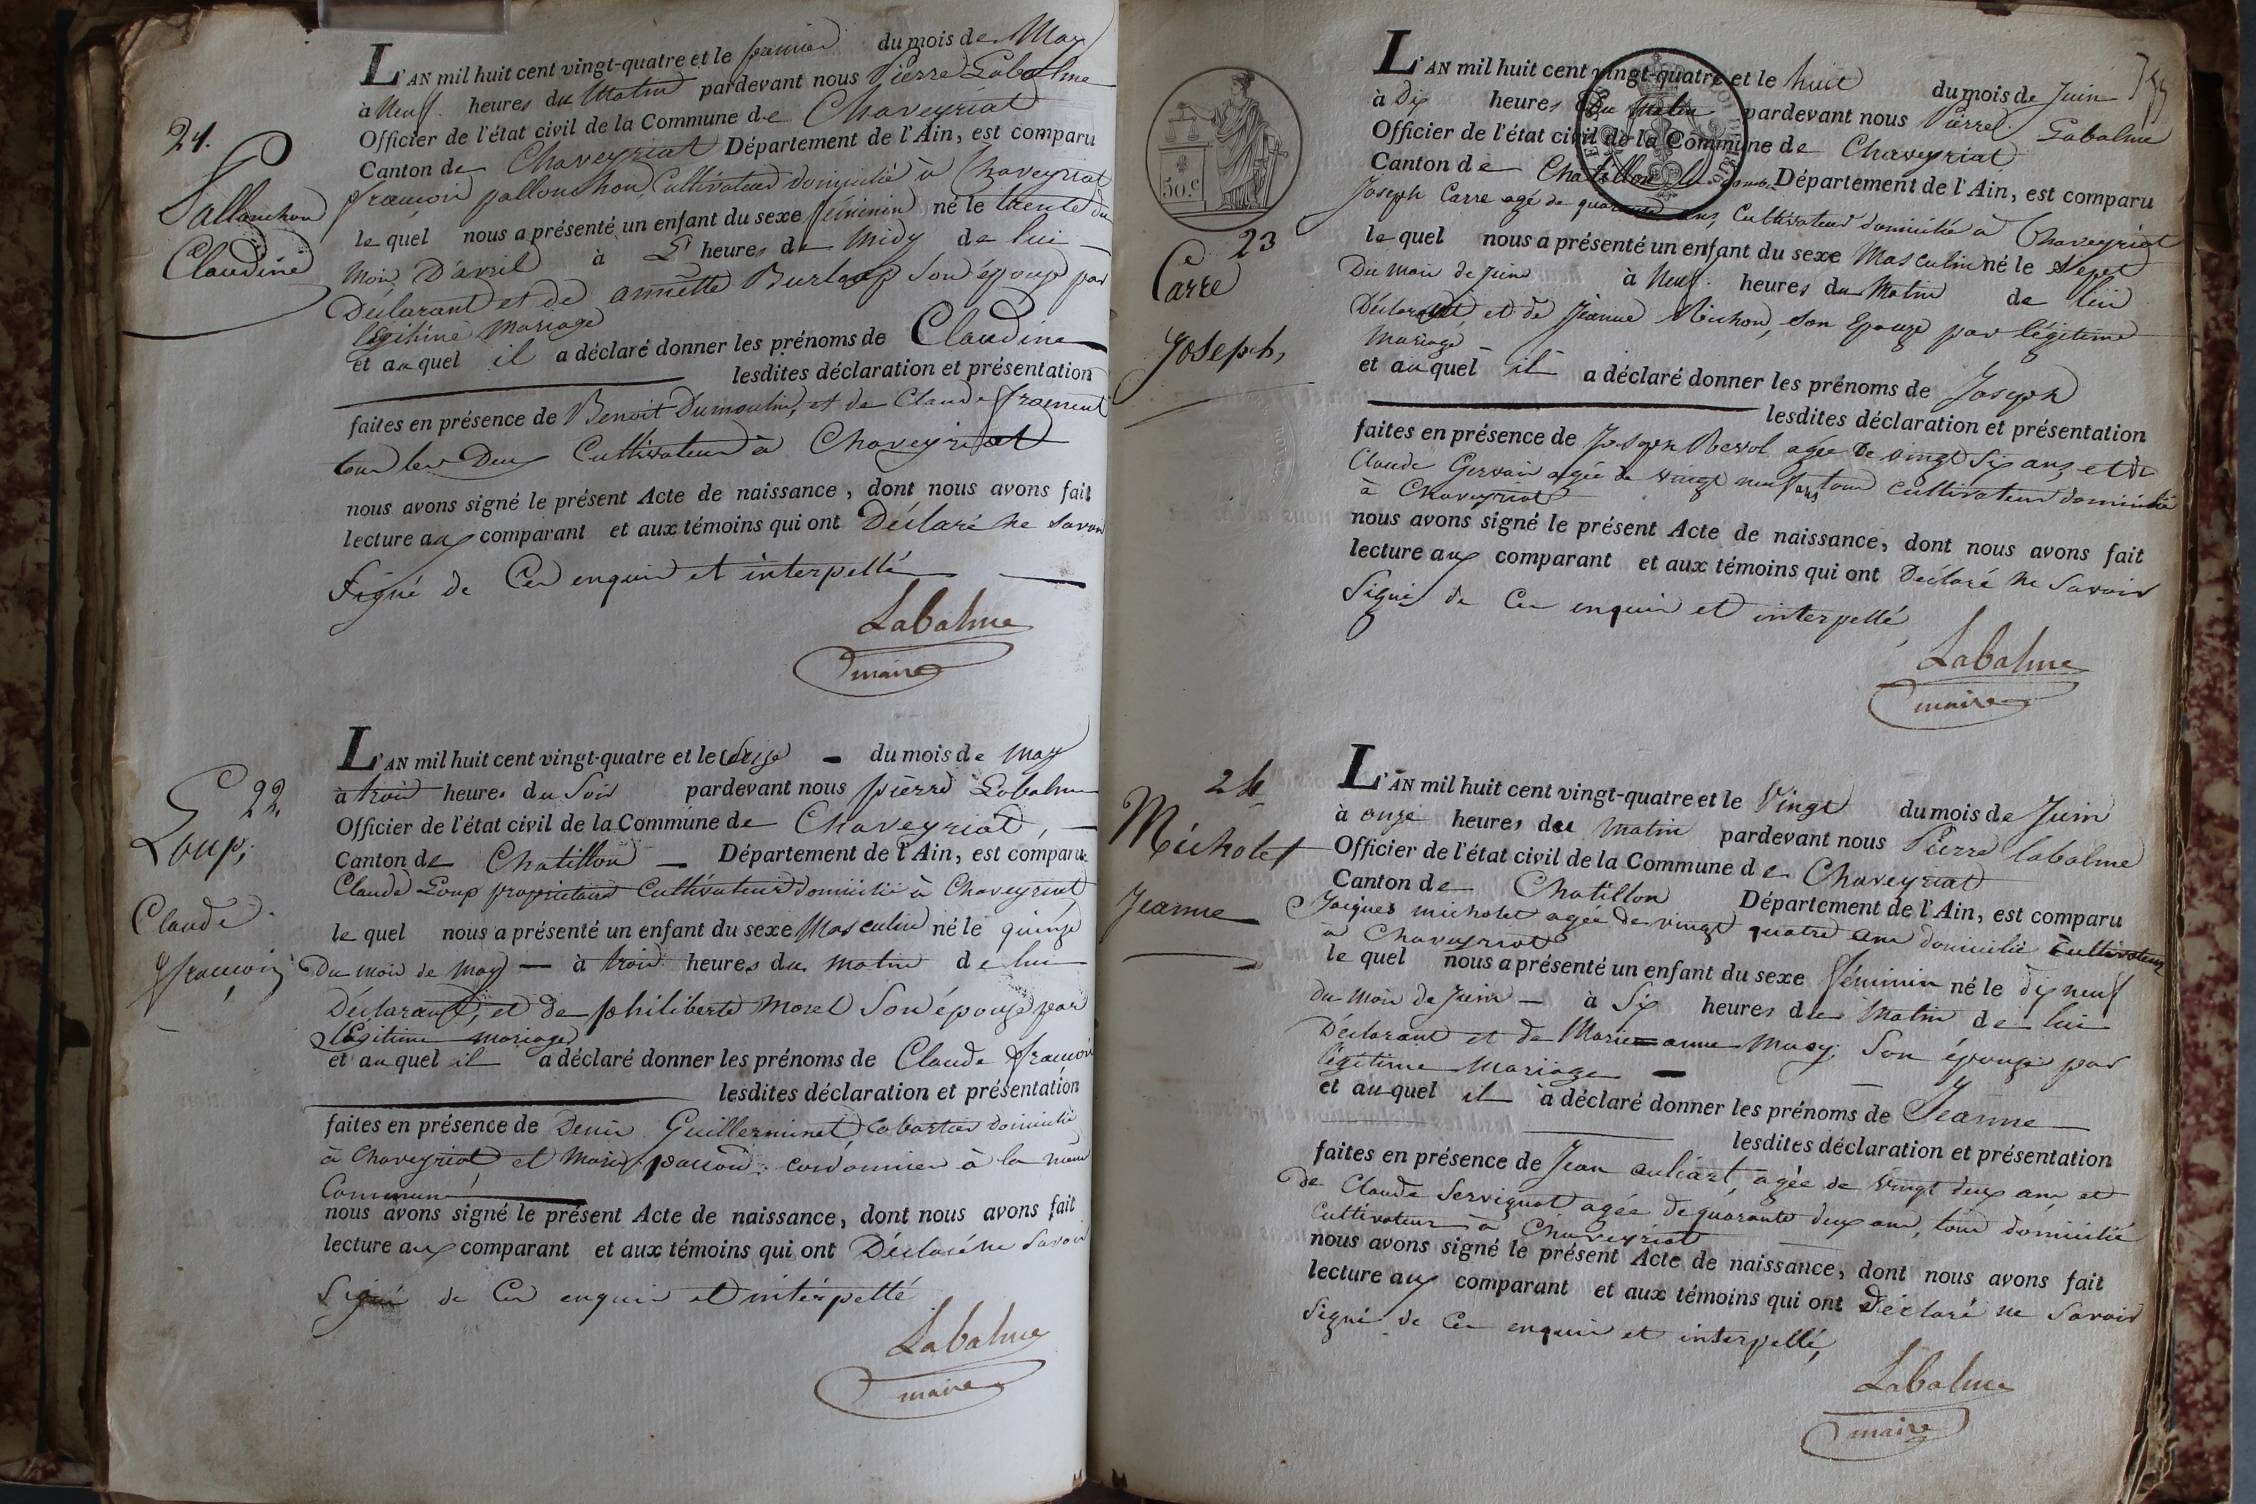 21.
Pallanchon
Claudine
L'AN mil huit cent vingt-quatre et le premier du mois de May
à Neuf heures du Matin pardevant nous Pierre Labalme
Officier de l'état civil de la Commune de Chaveyriat
Canton de Chaveyriat Département de l'Ain, est comparu
françois pallonchon, Cultivateur domicilié à Chaveyriat
le quel nous a présenté un enfant du sexe féminin né le trente du
Mois D'avril à heures de Midy de lui
Déclarant et de annette Burloup Son épouse par
légitime Mariage
et au quel il a déclaré donner les prénoms de Claudine
lesdites déclaration et présentation
faites en présence de Benoit Dumoulin, et de Claude froment
tous les Deux Cultivateur à Chaveyriat
nous avons signé le présent Acte de naissance, dont nous avons fait
lecture aux comparant et aux témoins qui ont Déclaré ne Savoir
Signé de Ce enquis et interpellé
Labalme
maire
22.
Loup,
Claude
françois
L'AN mil huit cent vingt-quatre et le Seize du mois de May
à trois heures du Soir pardevant nous pierre Labalme
Officier de l'état civil de la Commune de Chaveyriat,
Canton de Chatillon Département de l'Ain, est comparu
Claude Loup propriétaire Cultivateur domicilié à Chaveyriat
le quel nous a présenté un enfant du sexe Masculin né le quinze
Du mois de May à trois heures du matin de lui
Déclarant, et de philiberte Morel Son épouse par
Légitime mariage
et au quel il a déclaré donner les prénoms de Claude françois
lesdites déclaration et présentation
faites en présence de Denis Guillerminet Cabartier domicilié
à Chaveyriat et cordonnier à la même
Commune
nous avons signé le présent Acte de naissance, dont nous avons fait
lecture aux comparant et aux témoins qui ont Déclaré ne Savoir
Signé de Ce enquis et intérpellé
Labalme
maire
50.c
23
Carre
Joseph,
L'AN mil huit cent vingt-quatre et le huit du mois de Juin
à Dix heures du Matin pardevant nous Pierre Labalme
Officier de l'état civil de la Commune de Chaveyriat
Canton de Chatillon Département de l'Ain, est comparu
Joseph Carre agé de quarante ans, Cultivateur domicilié à Chaveyriat
le quel nous a présenté un enfant du sexe Masculin né le Sept
Du Mois de Juin à Neuf heures du Matin de lui
Déclarant et de Jeanne Michon, Son Epouze par légitime
Mariage
et au quel il a déclaré donner les prénoms de Joseph
lesdites déclaration et présentation
faites en présence de Joseph agée de vingt Six ans, et de
Claude Gervais agée de vingt neuf ans tous cultivateur domicilié
à Chaveyriat
nous avons signé le présent Acte de naissance, dont nous avons fait
lecture aux comparant et aux témoins qui ont Déclaré ne Savoir
Signé de Ce enquis et interpellé
Labalme
maire
24
Micholet
Jeanne
L'AN mil huit cent vingt-quatre et le Vingt du mois de Juin
à onze heures du matin pardevant nous Pierre labalme
Officier de l'état civil de la Commune de Chaveyriat
Canton de Chatillon Département de l'Ain, est comparu
Jacques micholet agée de vingt quatre ans domicilié Cultivateur
à Chaveyriat
le quel nous a présenté un enfant du sexe féminin né le dix neuf
du Mois de Juin à Six heures du Matin de lui
Déclarant et de Marie anne Son épouze par
légitime Mariage
et au quel il à déclaré donner les prénoms de Jeanne
lesdites déclaration et présentation
faites en présence de Jean auliart, agée de vingt deux ans et
de Claude Servignat agée de quarante deux ans, tous domicilié
Cultivateur à Chaveyriat
nous avons signé le présent Acte de naissance, dont nous avons fait
lecture aux comparant et aux témoins qui ont déclaré ne Savoir
Signé de Ce enquis et interpellé,
Labalme
maire